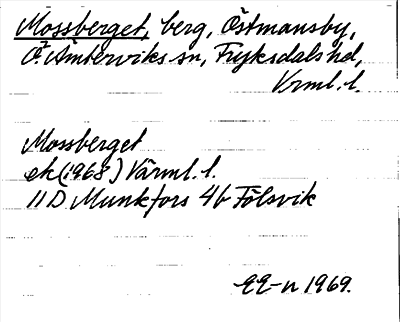 Mossberget, berg, Östmansby,
Ö. Ämterviks sn, Fryksdals hd,
Vrml. l.
Mossberget
ek (1968) Värml. l.
11D Munkfors 4b Fölsvik
EE-n 1969.